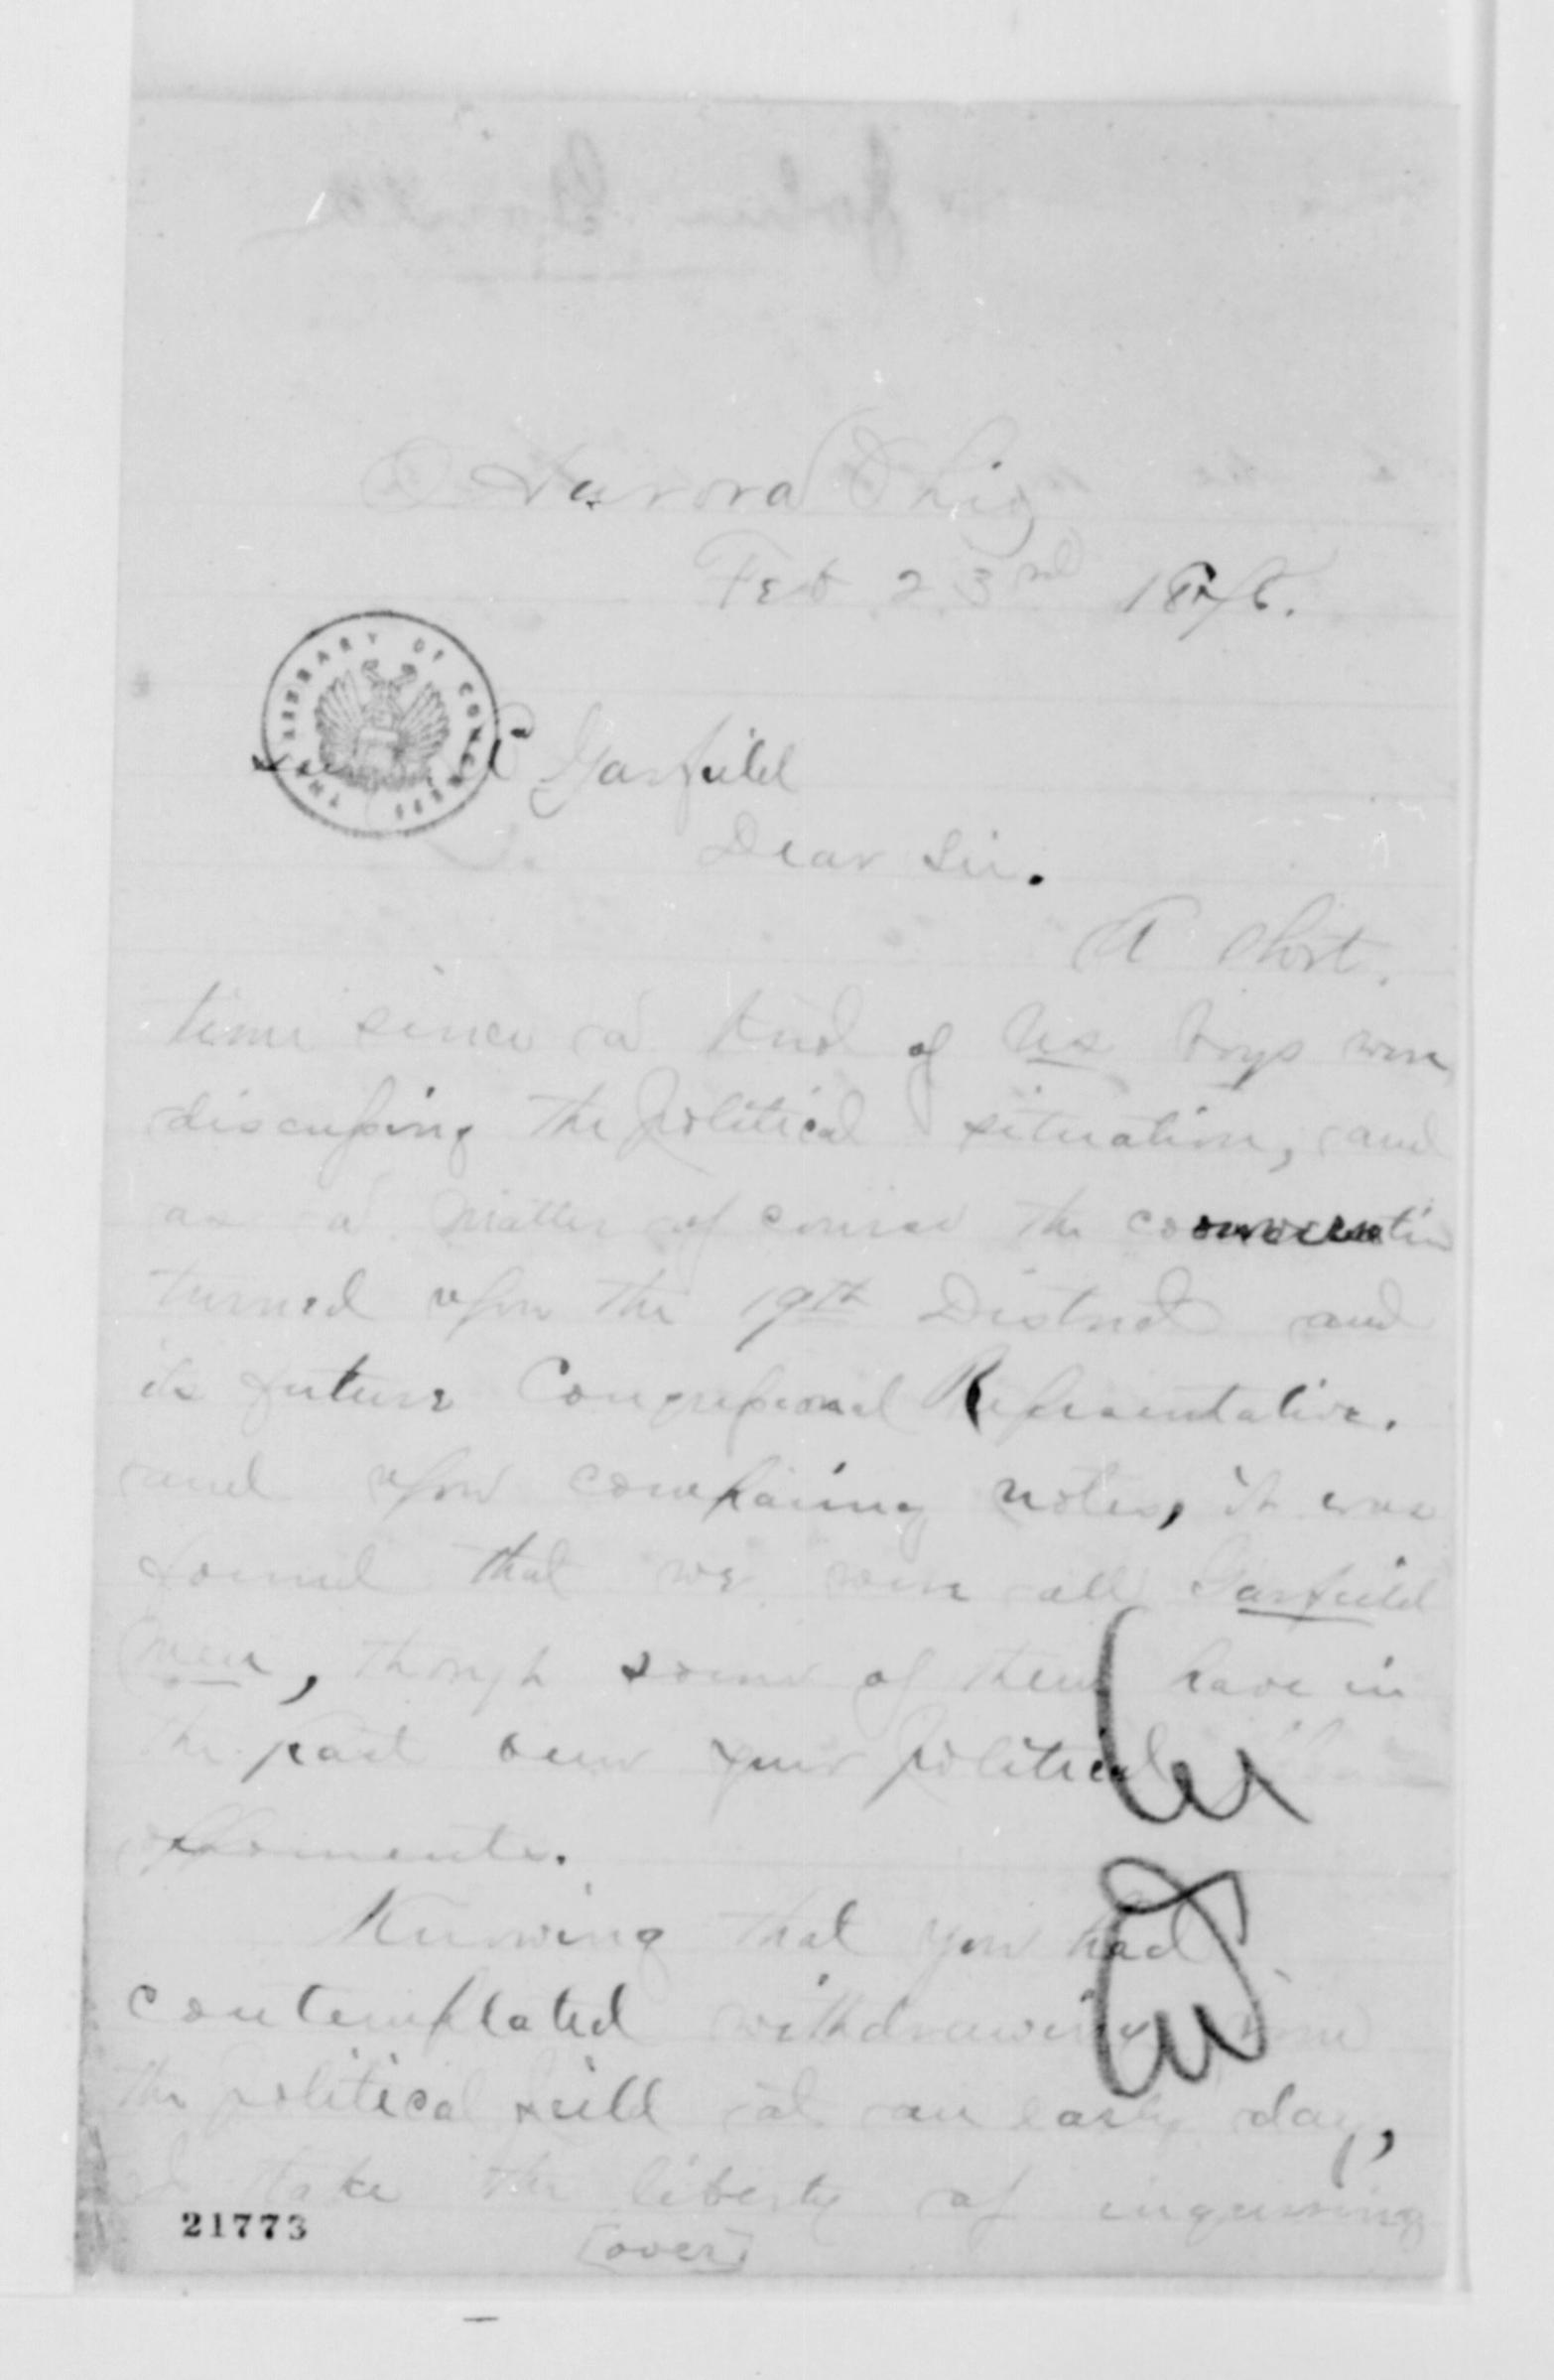 Aurora Ohio
Feb 23rd 1876.
THE LIBRARY OF CONGRESS
Garfield
Dear Sir.
A short
time since a knot of us boys were
discussing the political situation, and
as a matter of course the conversation
turned upon the 19th District and
its future Congressional Representative.
and upon comparing notes, it was
found that we were all Garfield
men, though some of them have in
the past been your political
opponents.
Knowing that you had
contemplated withdrawing from
the political field at an early day,
I take the liberty of inquiring
21773
[over]